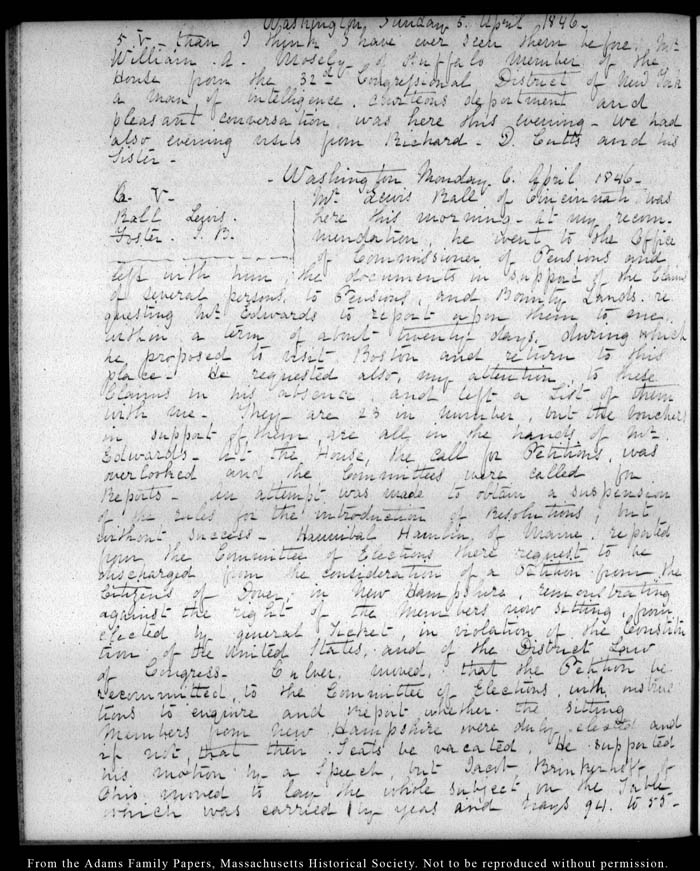 Washington, Sunday 5. April 1846.
5. V. than I think I have ever seen them before. Mr
William A. Mosely of Buffalo Member of the
House from the 32d Congressional District of New York
a man of intelligence, courteous deportment and
pleasant conversation, was here this evening - We had
also evening visits from Richard. D. Cutts and his
Sister -
- Washington Monday 6. April 1846 -
V-
Ball Lewis.
Foster. I. B.
Mr Lewis Ball of Cincinnati was
here this morning - At my recom-
mendation, he went to the Office
of Commissioner of Pensions and
left with him, the documents in support of the Claims
of several persons, to Pensions, and Bounty Lands. re
questing Mr Edwards to report upon them to me.
within a term of about twenty days, during which
he proposed to visit Boston and return to this
place - He requested also, my attention to these
Claims in his absence and left a List of them
with me - They are 23 in number, but the vouchers
in support of them, are all in the hands of Mr
Edwards - At the House, the call for Petitions, was
overlooked and the Committees were called for
Reports - An attempt was made to obtain a suspension
of the rules for the introduction of Resolutions, but
without success - Hannibal Hamlin, of Maine, reported
from the Committee of Elections there request to be
discharged from the consideration of a Petition from the
Citizens of Dover, in New Hampshire, remonstrating
against the right of the Members now sitting, from
elected by general Ticket, in violation of the Constitu
tion of the United States, and of the District Law
of Congress - Culver, moved, that the Petition be
recommitted, to the Committee of Elections, with instruc
tions to enquire and report whether the sitting
Members from New Hampshire were duly elected and
if not that their Seats be vacated. He supported
his motion by a Speech, but Jacob Brinkerhoff of
Ohio moved to lay the whole subject on the Table
which was carried by yeas and nays 94. to 55 -
From the Adams Family Papers, Massachusetts Historical Society. Not to be reproduced without permission.